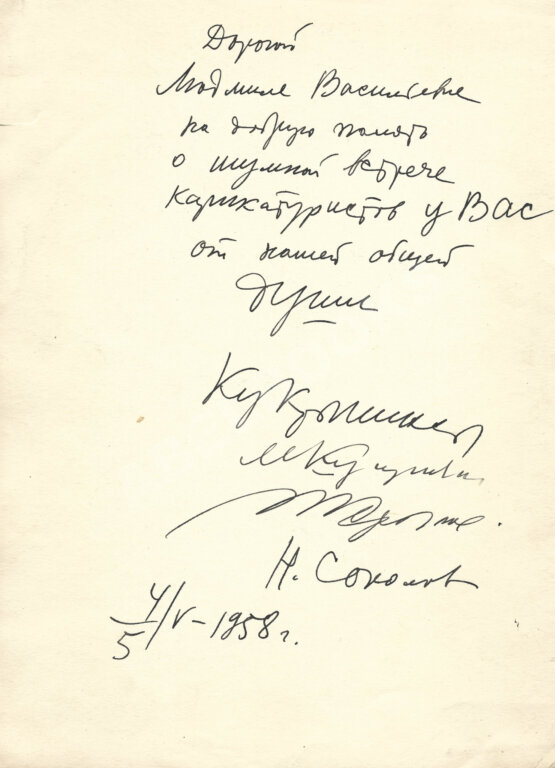 Дорогой
Людмиле Васильевне
на добрую память
о шумной встрече
карикатуристов у Вас
от нашей общей
души
Кукрыниксы
М Куприянов
П Крылов.
Н. Соколов
4/5/V-1958 г.